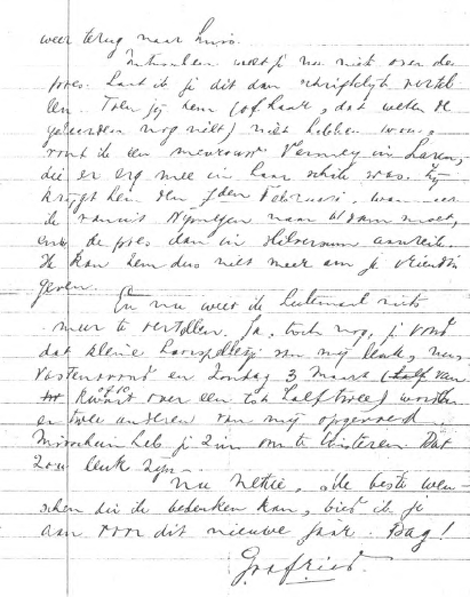 weer terug naar huis.
Intusschen weet je nu niet over de
poes. Laat ik je dit dan schriftelijk vertel
len. Toen jij hem (of haar, dat weten de
geleerden nog niet) niet hebben wou,
vond ik een mevrouw Verney in Laren,
die er erg mee in haar schik was. Zij
krijgt hem den 7den Februari, wanneer
ik vanuit Nymegen naar A'dam moet,
en de poes dan in Hilversum aanreik.
Ik kan hem dus niet meer aan je vriendin
geven.
En nu weet ik helemaal niets
meer te vertellen. Ja, toch nog, je vond
dat kleine hoorspelletje van mij leuk,
Vastenavond en Zondag 3 Maart (half van
kwart over een tot half twee) worden
er twee anderen van mij opgevoerd.
Misschien heb je zin om te luisteren. Dat
zou leuk zijn.
Nu Netie, de beste wen-
schen die ik bedenken kan, bied ik je
aan voor dit nieuwe jaar. Dag!
Godfried.